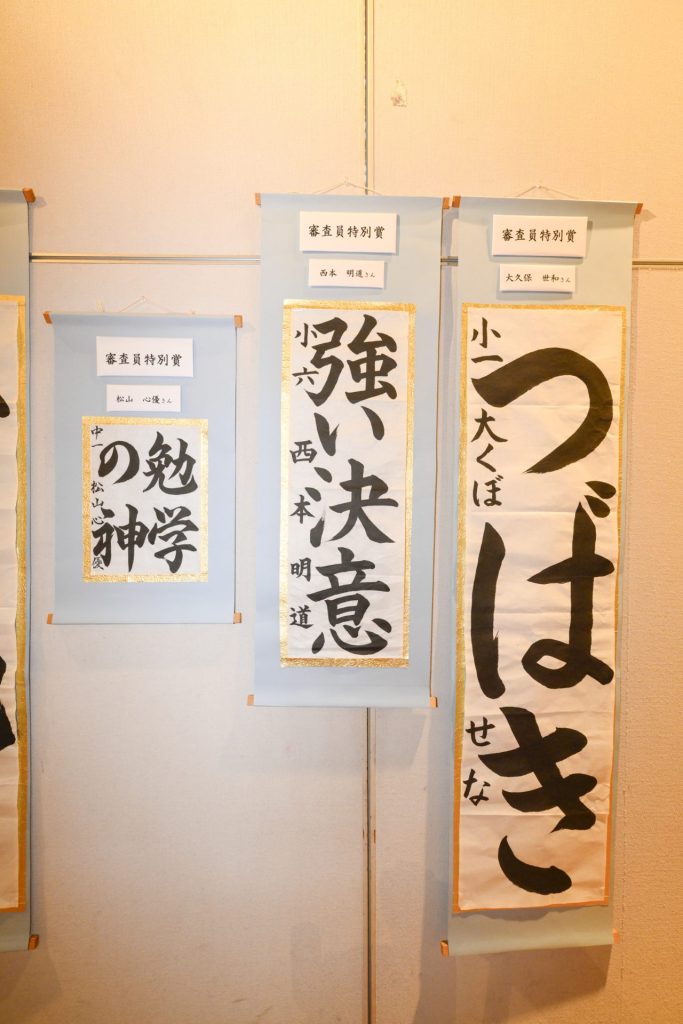 審査員特別賞
大久保 世和さん
つばき
小一 大くぼ せな
審査員特別賞
西本 明道さん
強い決意
小六 西本明道
審査員特別賞
松山 心優さん
勉学
の神
中一 松山心優